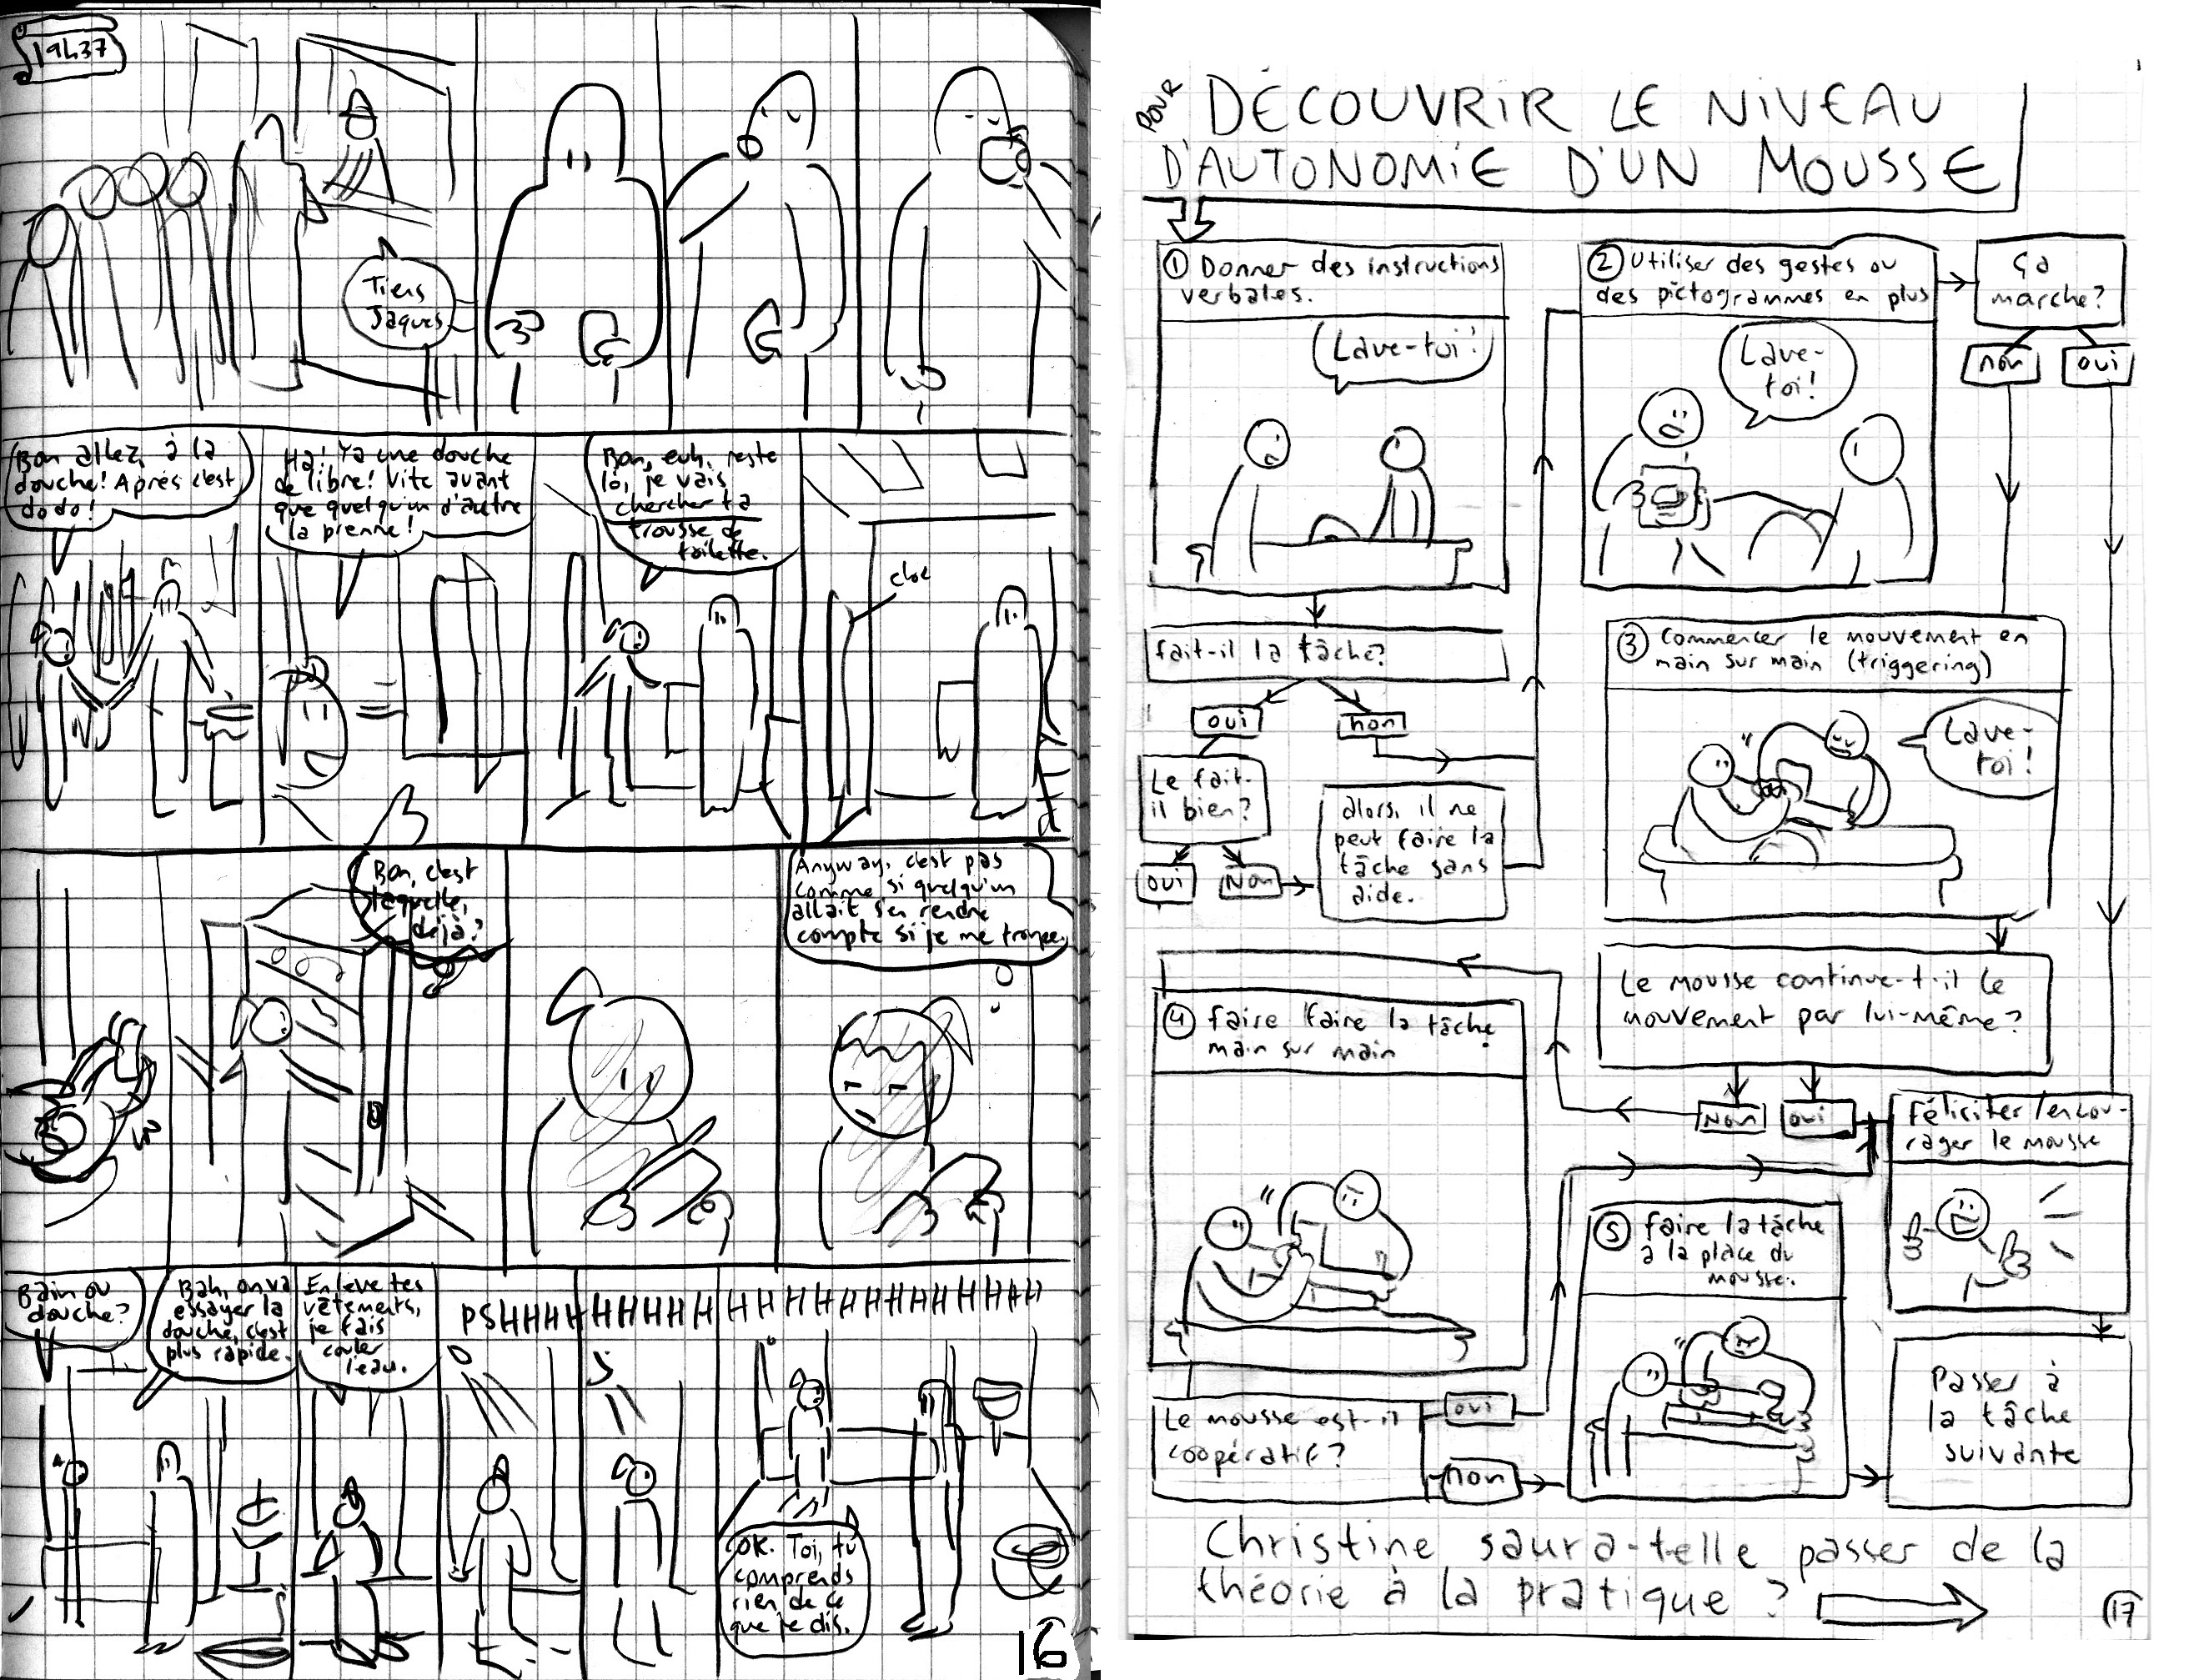 19h37
Tiens
Jaques
Bon allez, à la
douche! Après c'est
dodo!
Ha! Ya une douche
de libre! Vite avant
que quelqu'un d'autre
la prenne!
Bon, euh, reste
là, je vais
chercher ta
trousse de
toilette.
cloc
Bon, c'est
laquelle,
déjà?
Anyway, c'est pas
comme si quelqu'un
allait s'en rendre
compte si je me trompe.
Bain ou
douche?
Bah, on va
essayer la
douche, c'est
plus rapide.
Enlève tes
vêtements,
je fais
couler
l'eau.
PSHHHHHHHHHHHHHHHHHHHHH
OK. Toi, tu
comprends
rien de ce
que je dis.
16
POUR DÉCOUVRIR LE NIVEAU
D'AUTONOMIE D'UN MOUSSE
① Donner des instructions
verbales.
Lave-toi!
fait-il la tâche?
oui
non
Le fait-
il bien?
oui
Non
alors, il ne
peut faire la
tâche sans
aide.
② Utiliser des gestes ou
des pictogrammes en plus
Lave-
toi!
ça
marche?
non
oui
③ Commencer le mouvement en
main sur main (triggering)
Lave-
toi!
Le mousse continue-t-il le
mouvement par lui-même?
Non
oui
④ faire faire la tâche
main sur main
Le mousse est-il
coopératif?
oui
non
⑤ faire la tâche
à la place du
mousse.
Féliciter/encou-
rager le mousse
Passer à
la tâche
suivante
Christine saura-telle passer de la
théorie à la pratique?
17